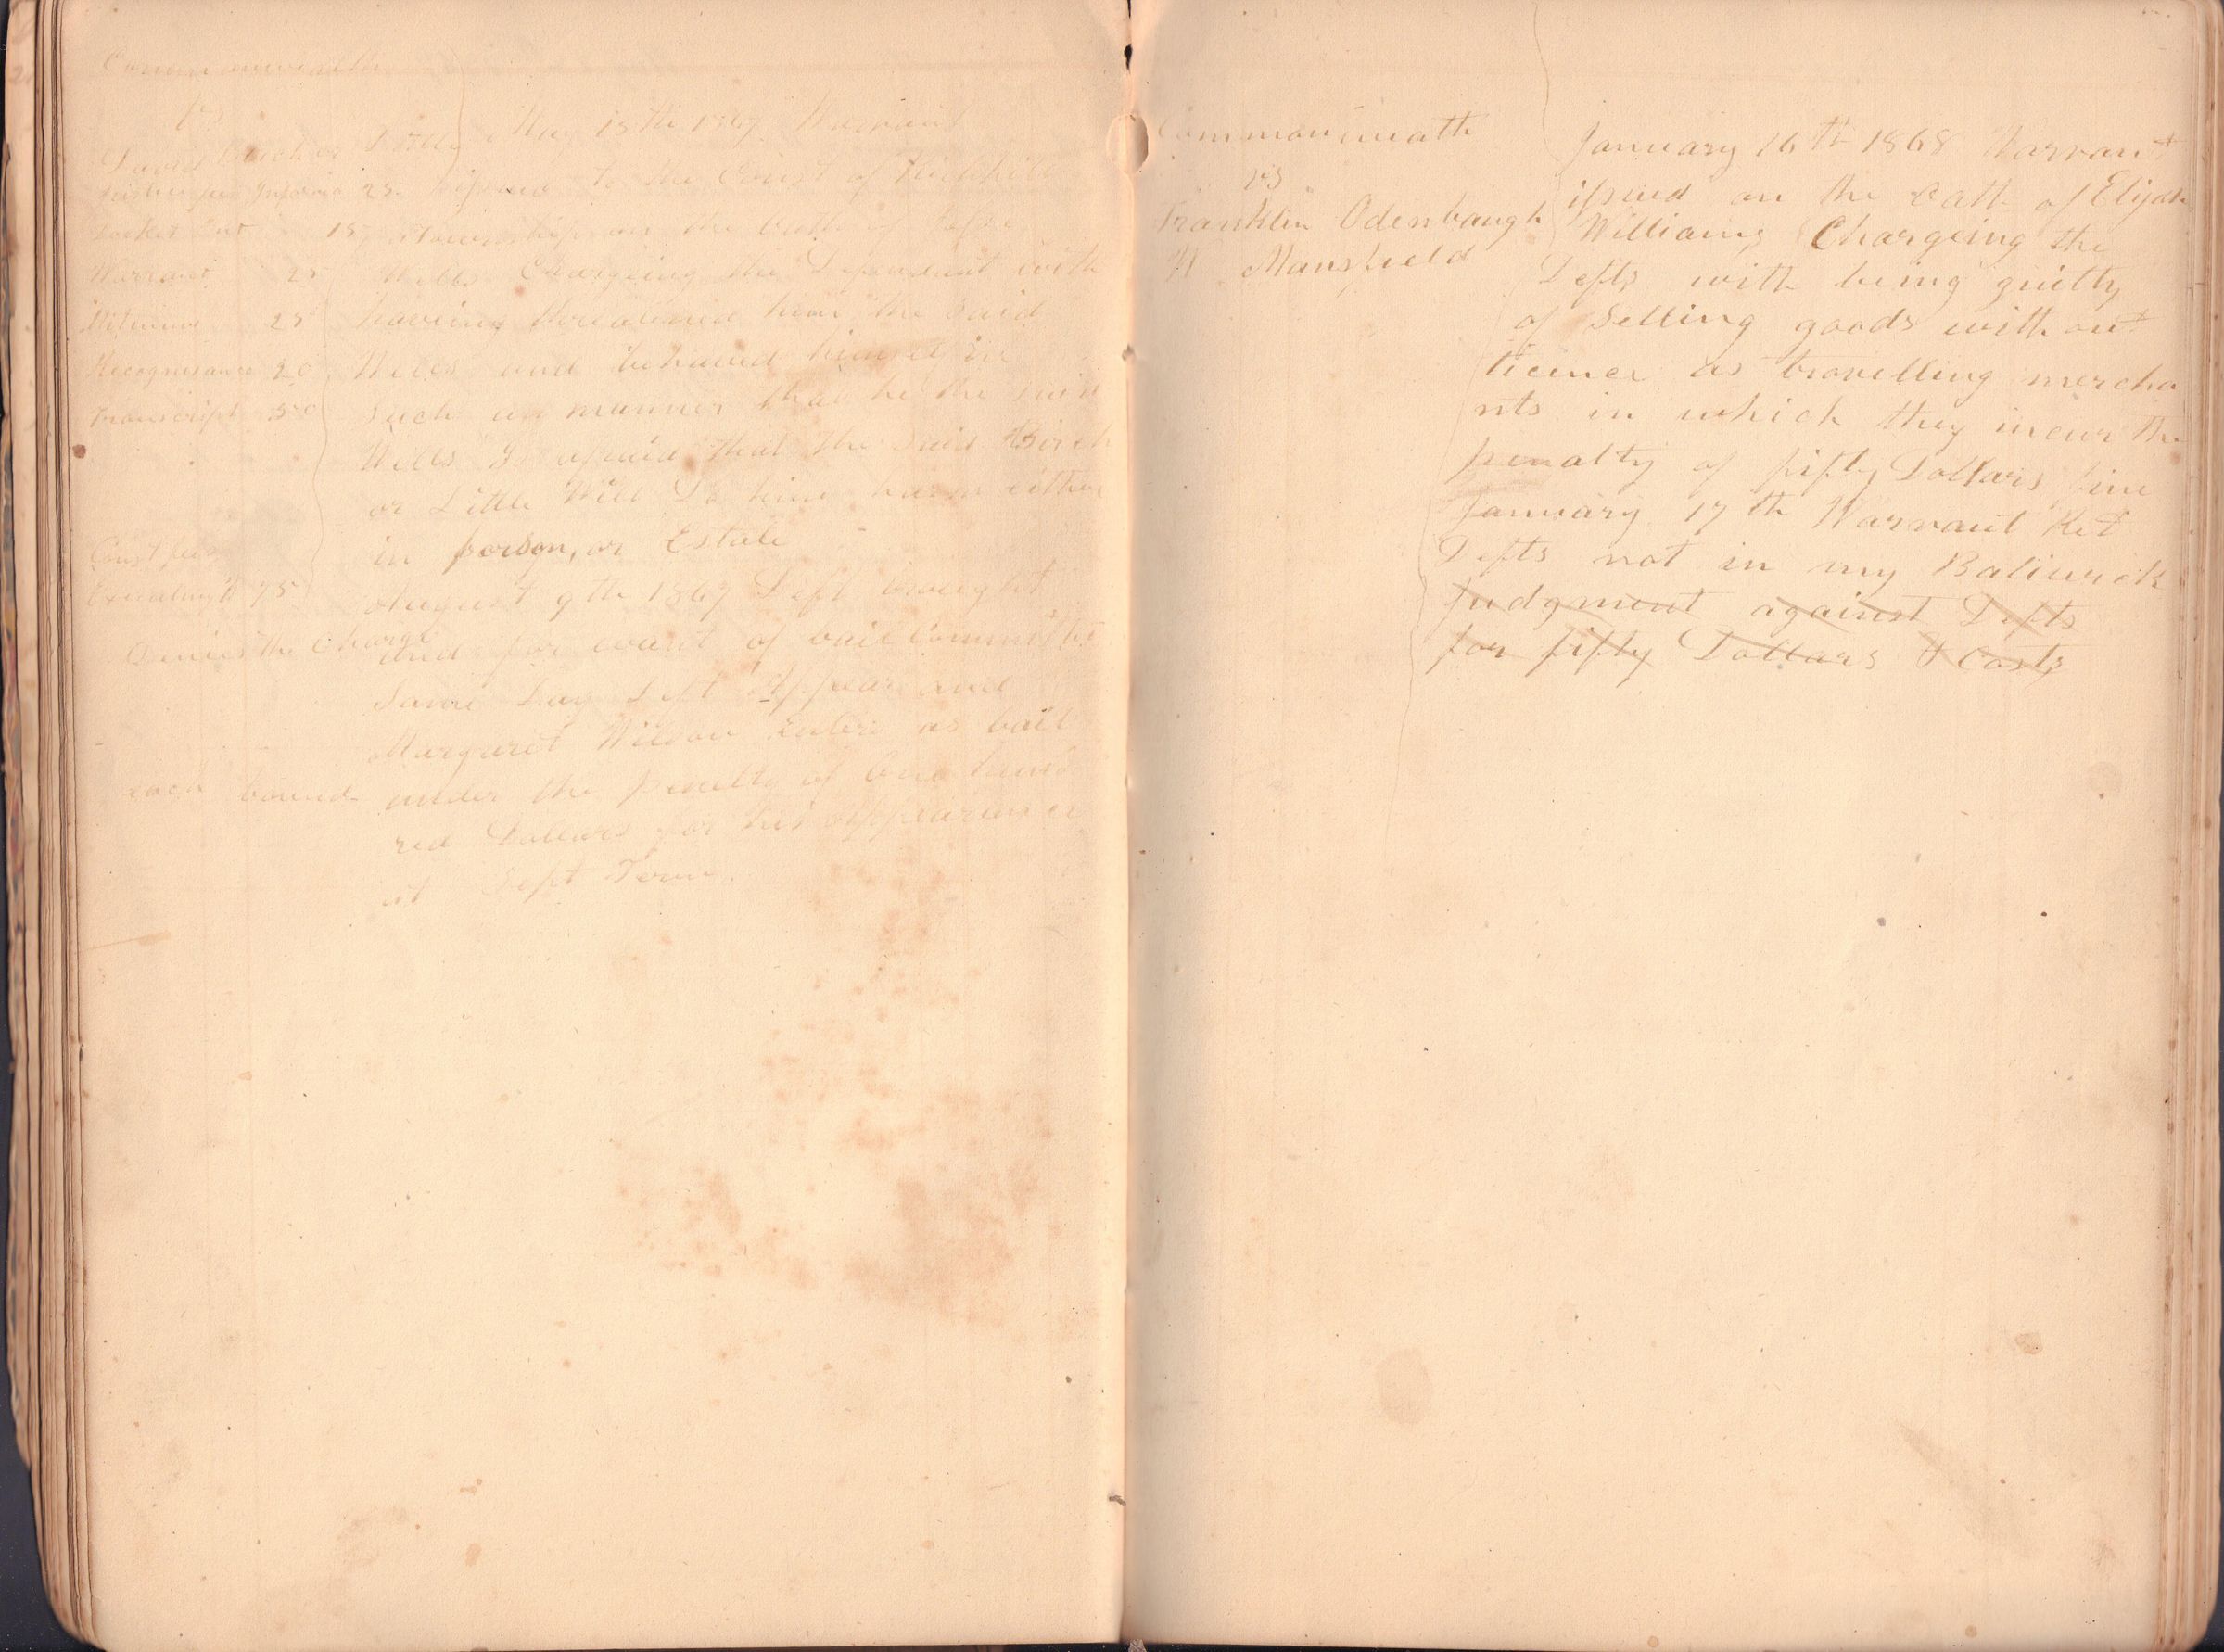 Commonwealth
vs
David Birch or Little
May 15th 1867 Warrant
Justices fees Informa 25
issued to the Const of Richhill
Docket Ent 15
Township on the Oath of
Warrant 25
Wells Chargeing the Defendant with
Mittimus 25
haveing threatened him the said
Recognisance 20
Wells and behaved himself in
Transcript 50
such un manner that he the said
Wells Is afraid that the said Birch
or Little Will Do him harm either
in person, or Estate
Const fees
Executing Wt 75
August 9th 1867 Deft brought
Denies the Charge
and for want of bail Committed
Same Day Deft Appears and
Margaret Wilson Enters as bail
each bound
under the Penalty of One hund
red Dollars for his Appearance
at Sept Term.
Commonweatth
vs
Franklin Odenbaugh
H Mansfield
January 16th 1868 Warrant
issued on the Oath of Elijah
Williams Chargeing the
Defts with being guilty
of Selling goods without
licence as travelling mercha
nts in which they incur the
penalty of fifty Dollars fine
January 17th Warrant Ret
Defts not in my Baliwick
Judgment against Defts
for fifty Dollars & Costs